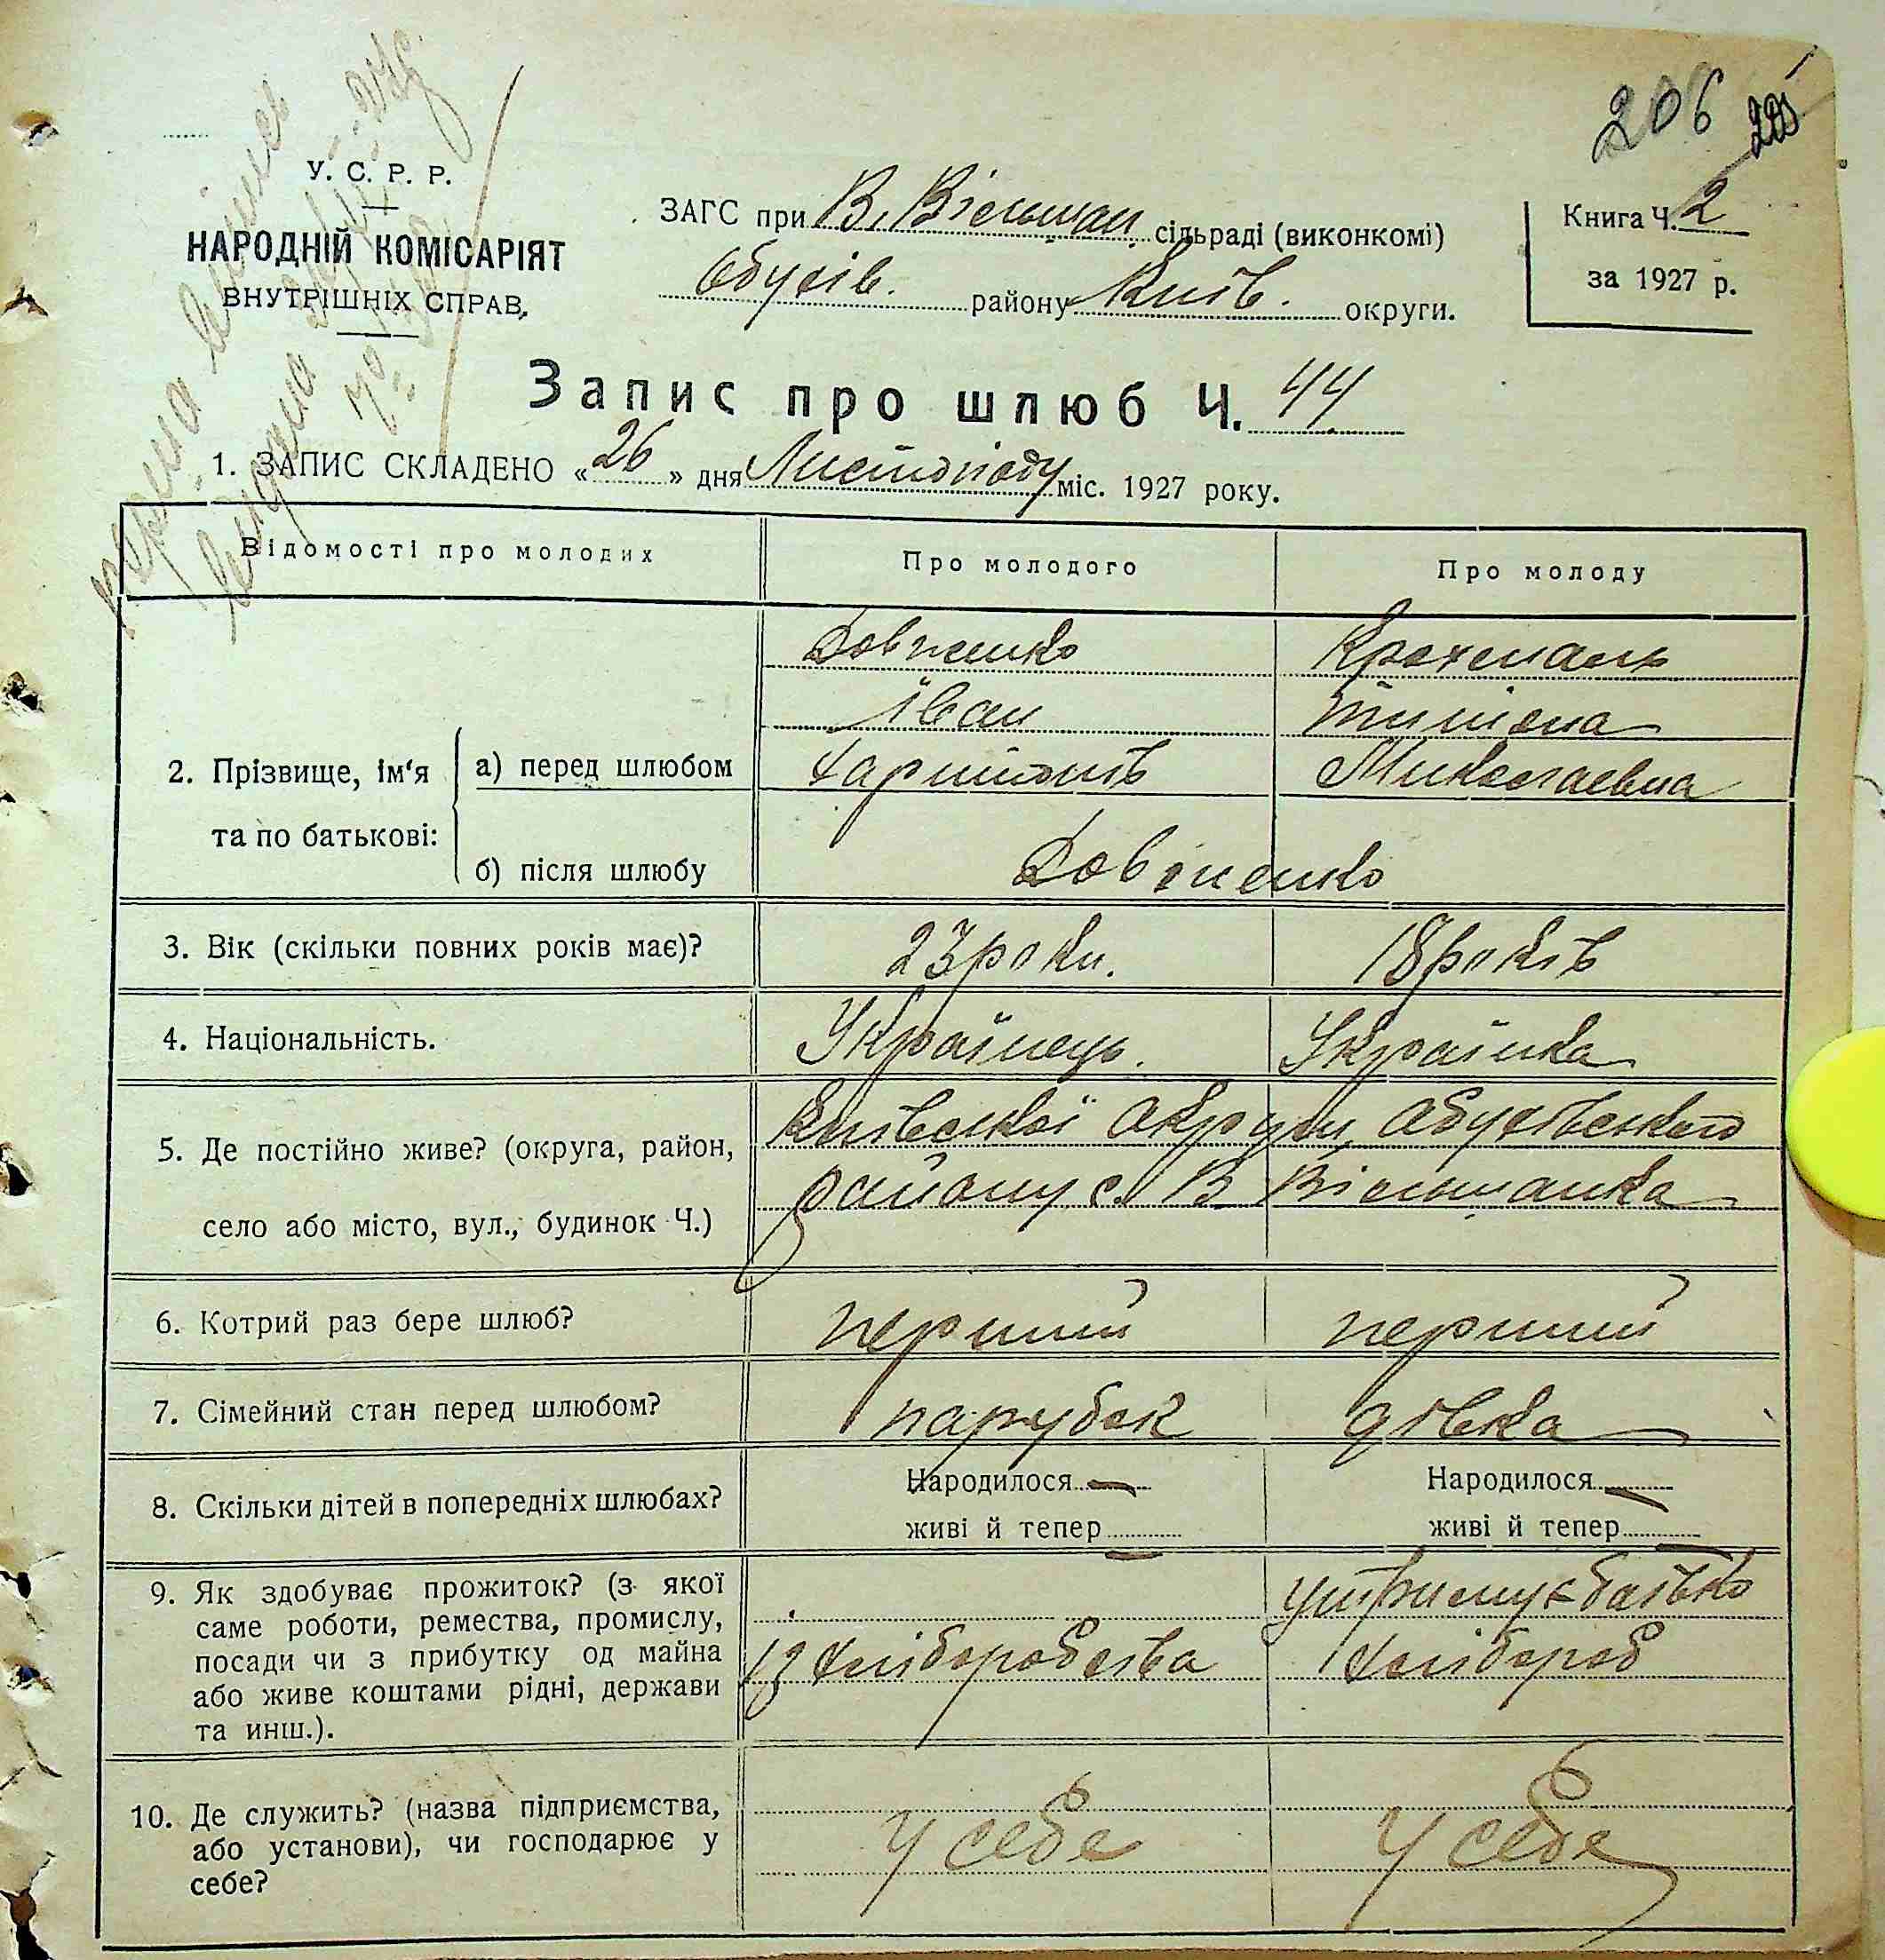 206
У. С. Р. Р.
НАРОДНІЙ КОМІСАРІЯТ
ВНУТРІШНІХ СПРАВ.
ЗАГС при В. Вільшан. сільраді (виконкомі)
Обухів. району Київ. округи.
Книга Ч. 2
за 1927 р.
Запис про шлюб Ч. 44
1. ЗАПИС СКЛАДЕНО «26» дня Листопаду міс. 1927 року.
Відомості про молодих
Про молодого
Про молоду
2. Прізвище, ім'я
та по батькові:
а) перед шлюбом
Довженко
Іван
Харитонів
Крохмаль
Титяна
Миколаевна
б) після шлюбу
Довженко
3. Вік (скільки повних років має)?
23 роки.
18 років
4. Національність.
Українець.
Українка
5. Де постійно живе? (округа, район,
село або місто, вул., будинок Ч.)
Київської округи, Обухівського
району с. В Вільшанка
6. Котрий раз бере шлюб?
перший
перший
7. Сімейний стан перед шлюбом?
парубок
дівка
8. Скільки дітей в попередніх шлюбах?
Народилося —
живі й тепер —
Народилося —
живі й тепер —
9. Як здобуває прожиток? (з якої
саме роботи, ремества, промислу,
посади чи з прибутку од майна
або живе коштами рідні, держави
та инш.).
із хліборобства
утримує батько
хлібороб
10. Де служить? (назва підприємства,
або установи), чи господарює у
себе?
у себе
у себе